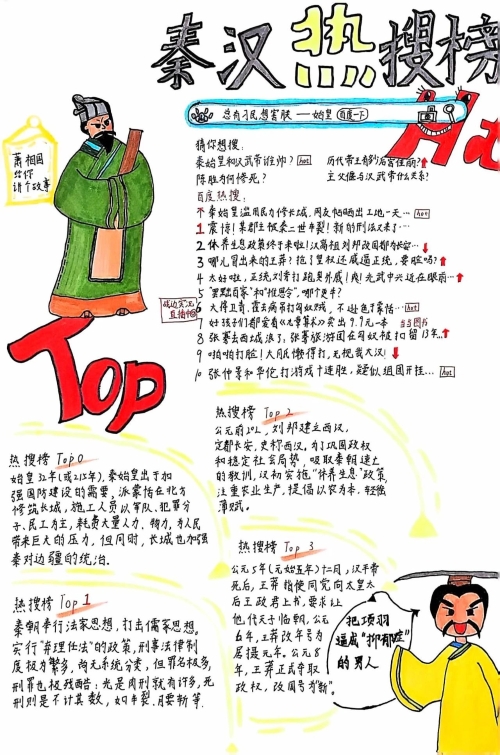 秦汉热搜榜
总有刁民想害朕——始皇 百度一下
Hot
萧相国
给你
讲个故事
猜你想搜:
秦始皇和汉武帝谁帅? hot 历代帝王有多厉害佳丽?
陈胜为何惨死? 主父偃与汉武帝什么关系?
百度热搜:
秦始皇滥用民力修长城,网友怕晒出工地一天… hot
1 震惊!某郡主被秦二世车裂!新的刑法又来了…
2 休养生息政策终于来啦!汉高祖刘邦改国都为长安…
3 哪儿冒出来的王莽?抢了皇权还威逼正统,要脸吗?
4 太好啦,正统刘秀打跑异外戚!爽!光武中兴近在眼前…
5 “罢黜百家”和“推恩令”,哪个更牛?
6 大将卫青、霍去病吊打匈奴贼,不逊色于蒙恬… hot
7 好孩子们都爱看《九章算术》卖出9.9元一本 当当图书
8 张骞去西域浪了,张骞旅游团在匈奴被扣留13年…
9 啪啪打脸!大月氏懒得打,无视我大汉!
10 张仲景和华佗打游戏十连胜,疑似组团开挂… hot
直播间
Top
热搜榜 Top 0
始皇32年(或215年),秦始皇出于加
强国防建设的需要,派蒙恬在北方
修筑长城,施工人员以军队、犯罪分
子、民工为主,耗费大量人力、物力,为人民
带来巨大的压力,但同时,长城也加强
秦对边疆的统治.
热搜榜 Top 1
秦朝奉行法家思想,打击儒家思想.
实行“弃理任法”的政策,刑事法律制
度极为繁多,尚无系统分类,但罪名极多,
刑罪也极残酷:光是肉刑就有许多,死
刑则是不计其数,如车裂.腰斩等.
热搜榜 Top 2
公元前202,刘邦建立西汉,
定都长安,史称西汉.为了巩固政权
和稳定社会局势,吸取秦朝速亡
的教训,汉初实施“休养生息”政策,
注重农业生产,提倡以农为本.轻徭
薄赋.
热搜榜 Top 3
公元5年(元始五年)十二月,汉平帝
死后,王莽指使同党向太皇太
后王政君上书,要求让
他代天子临朝,公元
6年,王莽改年号为
居摄元年.公元8
年,王莽正式夺取
政权,改国号为“新”.
把项羽
逼成“抑郁症”
的男人